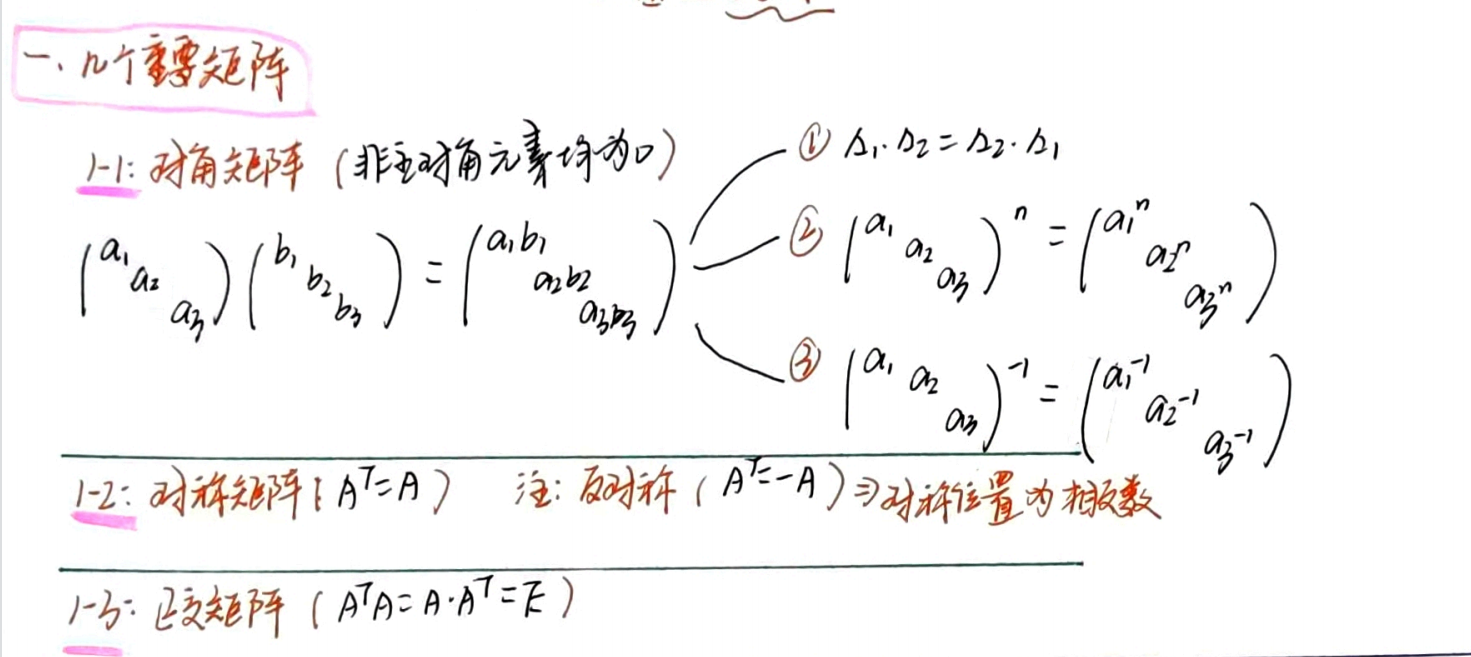 一、几个重要矩阵
1-1: 对角矩阵 (非主对角元素均为0)
(a₁ a₂ a₃)(b₁ b₂ b₃) = (a₁b₁ a₂b₂ a₃b₃)
① Δ₁·Δ₂=Δ₂·Δ₁
② (a₁ a₂ a₃)ⁿ = (a₁ⁿ a₂ⁿ a₃ⁿ)
③ (a₁ a₂ a₃)⁻¹ = (a₁⁻¹ a₂⁻¹ a₃⁻¹)
1-2: 对称矩阵 (Aᵀ=A) 注: 反对称 (Aᵀ=-A) ⇒对称位置为相反数
1-3: 正交矩阵 (AᵀA=A·Aᵀ=E)